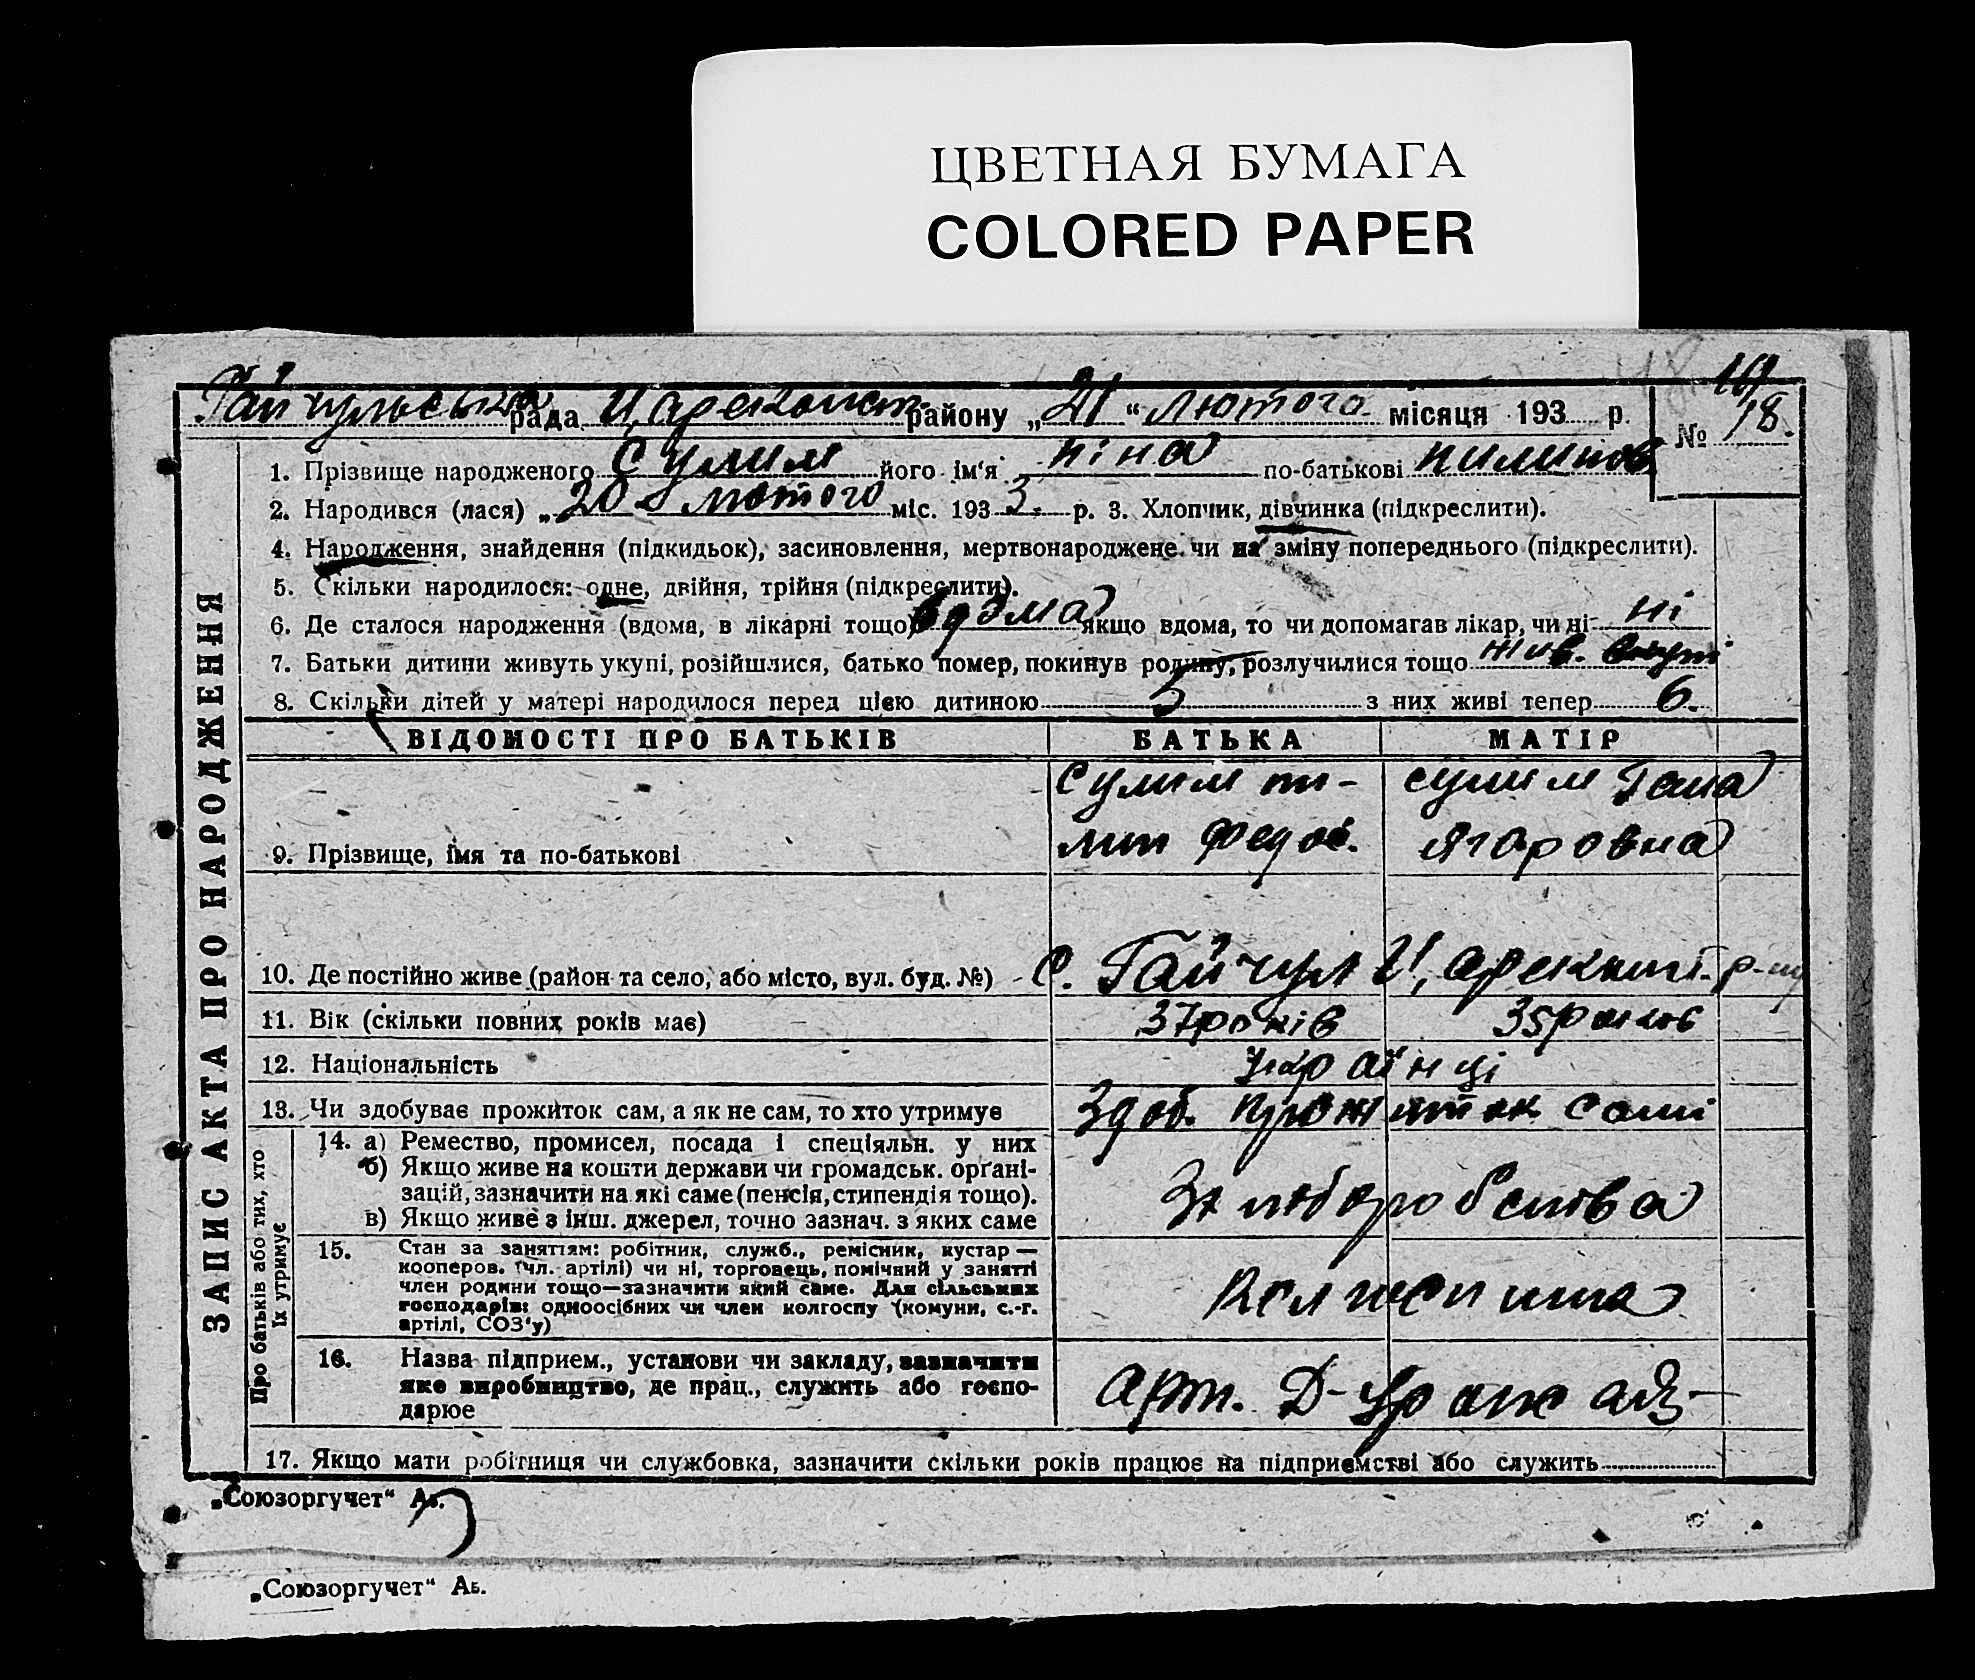 ЦВЕТНАЯ БУМАГА
COLORED PAPER
Гайчульська рада Царекост. району „21“ Лютого місяця 193 р.
№ 18.
1. Прізвище народженого Сулим його ім'я Ніна по-батькові Пилипов
2. Народився (лася) „20 Лютого міс. 193 3. р. 3. Хлопчик, дівчинка (підкреслити).
4. Народження, знайдення (підкидьок), засиновлення, мертвонароджене чи на зміну попереднього (підкреслити).
5. Скільки народилося: одне, двійня, трійня (підкреслити).
6. Де сталося народження (вдома, в лікарні тощо) вдома якщо вдома, то чи допомагав лікар, чи ні ні
7. Батьки дитини живуть укупі, розійшлися, батько помер, покинув родину, розлучилися тощо жив. вкупі
8. Скільки дітей у матері народилося перед цією дитиною 5 з них живі тепер 6.
ЗАПИС АКТА ПРО НАРОДЖЕННЯ
ВІДОМОСТІ ПРО БАТЬКІВ БАТЬКА МАТІР
Сулим пи- сулим Гана
9. Прізвище, імя та по-батькові лип Федос. Ягоровна
10. Де постійно живе (район та село, або місто, вул. буд. №) С. Гайчул Царекост. р-ну
11. Вік (скільки повних років має) 37 років 35 років
12. Національність українці
13. Чи здобуває прожиток сам, а як не сам, то хто утримує Здоб. прожиток самі
Про батьків або тих, хто
їх утримує
14. а) Ремество, промисел, посада і специяльн. у них
б) Якщо живе на кошти держави чи громадськ. орґані-
зацій, зазначити на які саме (пенсія, стипендія тощо).
в) Якщо живе з інш. джерел, точно зазнач. з яких саме
Хлібороб
15. Стан за заняттям: робітник, служб., ремісник, кустар —
кооперов. (чл. артілі) чи ні, торговець, помічний у занятті
член родини тощо—зазначити який саме. Для сільських
господарів: одноосібних чи член колгоспу (комуни, с.-г.
артілі, СОЗ'у)
Колгоспника
16. Назва підприєм., установи чи закладу, зазначити
яке виробництво, де прац., служить або госпо-
дарює
Арт. Д-
17. Якщо мати робітниця чи службовка, зазначити скільки років працює на підприємстві або служить
„Союзоргучет“ Аь.
„Союзоргучет“ Аь.